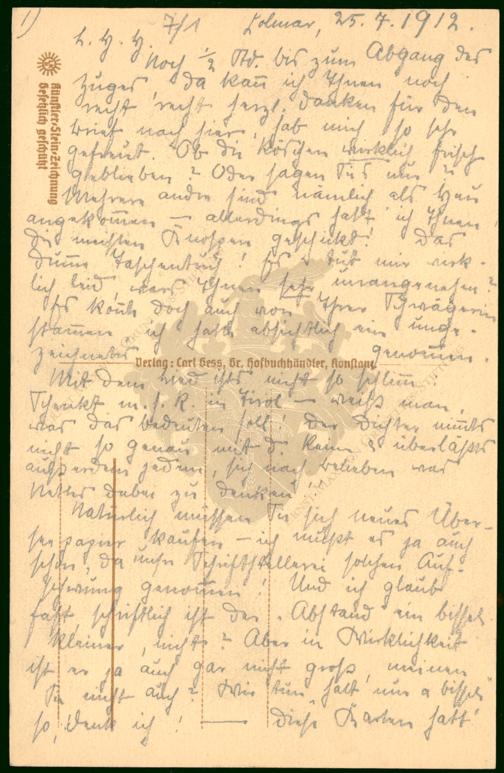 1)
7/1 Colmar, 25.7.1912.
L. H. H. Noch 1/2 Std. bis zum Abgang des
Zuges da kann ich Ihnen noch
recht, recht herzl. danken für den
Brief nach hier, hab mich so sehr
gefreut. Ob die Röschen wirklich frisch
geblieben? Oder sagen Sie's nur?
Mehrere andre sind nämlich als Heu
angekommen — allerdings hatt' ich Ihnen
die meisten Knospen geschickt! Das
dumme Taschentuch! Es tut mir wirk-
lich leid wars Ihnen sehr unangenehm?
Es könnt doch auch von Ihrer Schwägerin
stammen ich hatte absichtlich ein unge-
zeichnetes genommen.
Künstler-Stein-Zeichnung
Gesetzlich geschützt
Verlag: Carl Gess, Gr. Hofbuchhändler, Konstanz
Mit dem Lied ists nicht so schlimm
in Tirol — weiß man,
was das bedeuten soll! Der Dichter nimmts
nicht so genau mit d. Reim & überläßts
außerdem jedem, sich nach Belieben was
Nettes dabei zu denken!
Natürlich müssen Sie sich neues Über-
seepapier kaufen — ich müßt es ja auch
schon, da unsre Schriftstellerei solchen Auf-
schwung genommen! Und ich glaub
fast schriftlich ist der "Abstand" ein bissel
kleiner, nicht? Aber in Wirklichkeit
ist er ja auch gar nicht groß, meinen
Sie nicht auch? Wir tun halt nur a bissel
so, denk ich! — diese Karten hatt'